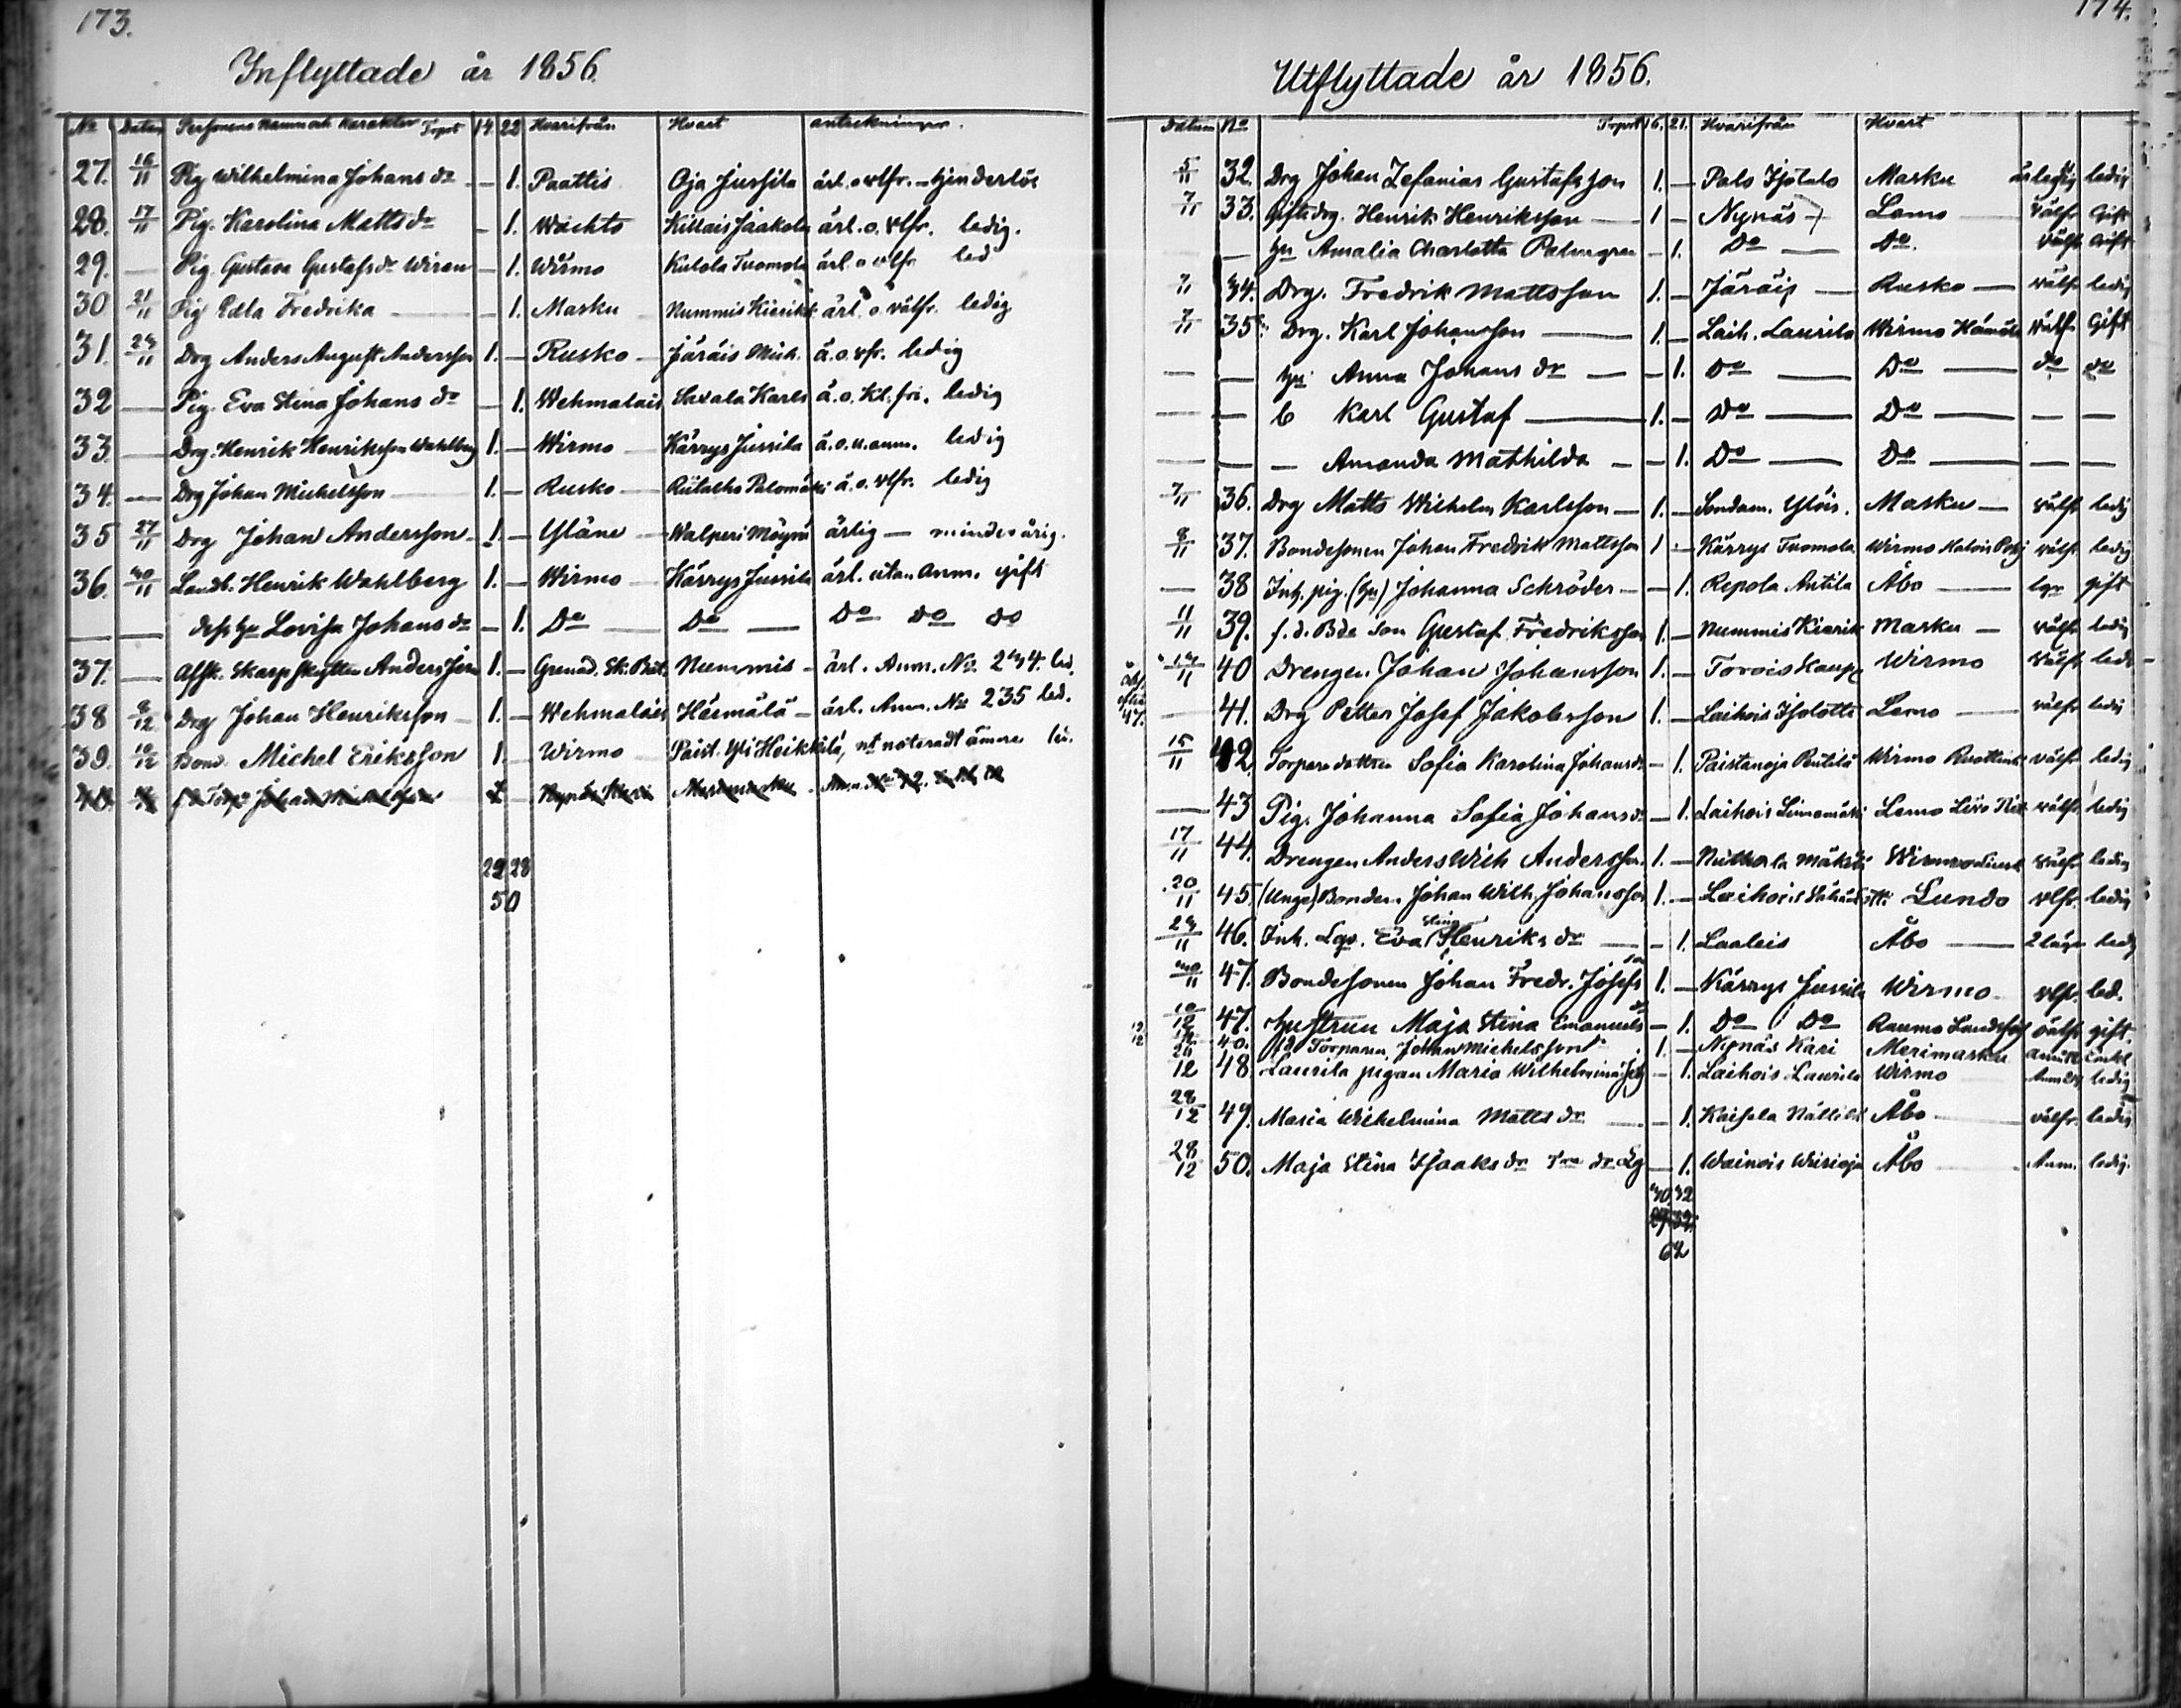 173.
Inflyttade år 1856.
No Datum Personens Namn och Karakter Trprt 14 22 Hvarifrån Hvart anteckningar.
27. 16/11 Pig Wilhelmina Johans dr — 1. Paattis Oja Jussila ärl. o vlfr. — hinderlös
28. 17/11 Pig. Karolina Matts dr — 1. Wächto Killais Jaakola ärl. o. vlfr. ledig.
29. — Pig. Gustava Gustafs dr Wiren — 1. Wirmo Kulola Tuomola ärl. o vlfr led
30 21/11 Pig Edla Fredrika — 1. Masku Nummis Kierikk ärl. o välfr. ledig
31. 23/11 Drg Anders August Andersson 1. — Rusko — Järäis Mich. ä. o. vfr. ledig
32 — Pig. Eva Stina Johans dr — 1. Wehmalais Saxala Karls ä. o. kl. fri. ledig
33 — Drg. Henrik Henriksson Wahlberg 1. — Wirmo — Kärrys Jussila ä. o. u. anm. ledig
34. — Drg Johan Michelsson — 1. — Rusko — Riitalho Palomäki ä. o. vlfr. ledig
35 27/11 Drg Johan Andersson — 1. — Yläne — Walperi Möyni ärlig — minderårig.
36. 30/11 Landb. Henrik Wahlberg 1. — Wirmo — Kärrys Jussila ärl. utan Anm. gift
— — dess hu Lovisa Johans dr — 1. Do — Do — Do Do do
37. — Afsk. Skarpskytten Anders 1. — Grenad. Sk. Bat. Nummis — ärl. Anm. No. 234. led.
38 8/12 Drg Johan Henriksson — 1. — Wehmalais Härmälä — ärl. Anm. No 235 led.
39. 10/12 Bond. Michel Eriksson 1. Wirmo Paist. Yli Heikkilä, nt noteradt ämne
40. Torp. Johan Michelsson 1 Nynäs Kari Merimasku Anm. No 12.
22 28
50
174.
Utflyttade år 1856.
Datum No Trprt 16. 21. Hvarifrån Hvart
5/11 32. Drg Johan Zefanias Gustafsson 1. — Palo Isotalo Masku ärlig ledig
7/11 33. Gifte drg. Henrik Henriksson — 1 — Nynäs Lemo välfr Gift
— hu Amalia Charlotta Palmgren — 1. Do — Do. välfr Gift
7/11 34. Drg. Fredrik Mattsson 1. — Järäis — Rusko — välfr ledig
7/11 35. Drg. Karl Johansson — 1. — Laih. Laurila Wirmo välfr Gift
— — hu Anna Johans dr — — 1. Do — Do — do do
— — b Karl Gustaf — 1. — Do — Do — — —
— — — Amanda Mathilda — — 1. Do — Do — — —
7/11 36. Drg Matts Wilhelm Karlsson — 1. — Sondam. Yläis. Masku — välfr ledig
8/11 37. Bondesonen Johan Fredrik Mattsson 1 — Kärrys Tuomola Wirmo välfr ledig
— 38 Inh. pig. (hu) Johanna Schröder — — 1. Repola Antila Åbo — gift
11/11 39. f. d. Bde son Gustaf Fredriksson 1. — Nummis Kierik Masku — välfr ledig
14/11 40 Drengen Johan Johansson 1. — Torois Kaup Wirmo välfr led
— 41. Drg Petter Josef Jakobsson 1. — Laihois Isolotti Lemo — välfr ledig
15/11 42. Torpare dottren Sofia Karolina Johans dr — 1. Paistanoja Pentilä Wirmo välfr ledig
— 43 Pig. Johanna Sofia Johans dr — 1. Laihois Linnamäki Lemo välfr ledig
17/11 44. Drengen Anders Wilh Andersson 1. — Mäkilä Wirmo välfr ledig
20/11 45. (Unge) Bonden Johan Wilh. Johansson 1. — Laihois Lundo vlfr. ledig
23/11 46. Inh. Lgo. Eva Stina Henriks dr — — 1. Laaleis Åbo — ledig
30/11 47. Bondesonen Johan Fredr. Josefs son 1. — Kärrys Jussila Wirmo vlfr. led.
10/12 47. hustrun Maja Stina Emanuels dr — 1. Do Do Raumo välfr gift.
12/12 40. fd Torparen Johan Michelsson 1. — Nynäs Kari Merimasku
26/12 48. Laurila pigan Maria Wilhelmina — 1. Laihois Laurila Wirmo ledig
28/12 49. Maria Wilhelmina Matts dr — — 1. Kaisela Åbo — välfr. ledig
28/12 50. Maja Stina Isaaks dr — 1. Wainois Åbo — Anm. ledig.
30 32
29 32
62